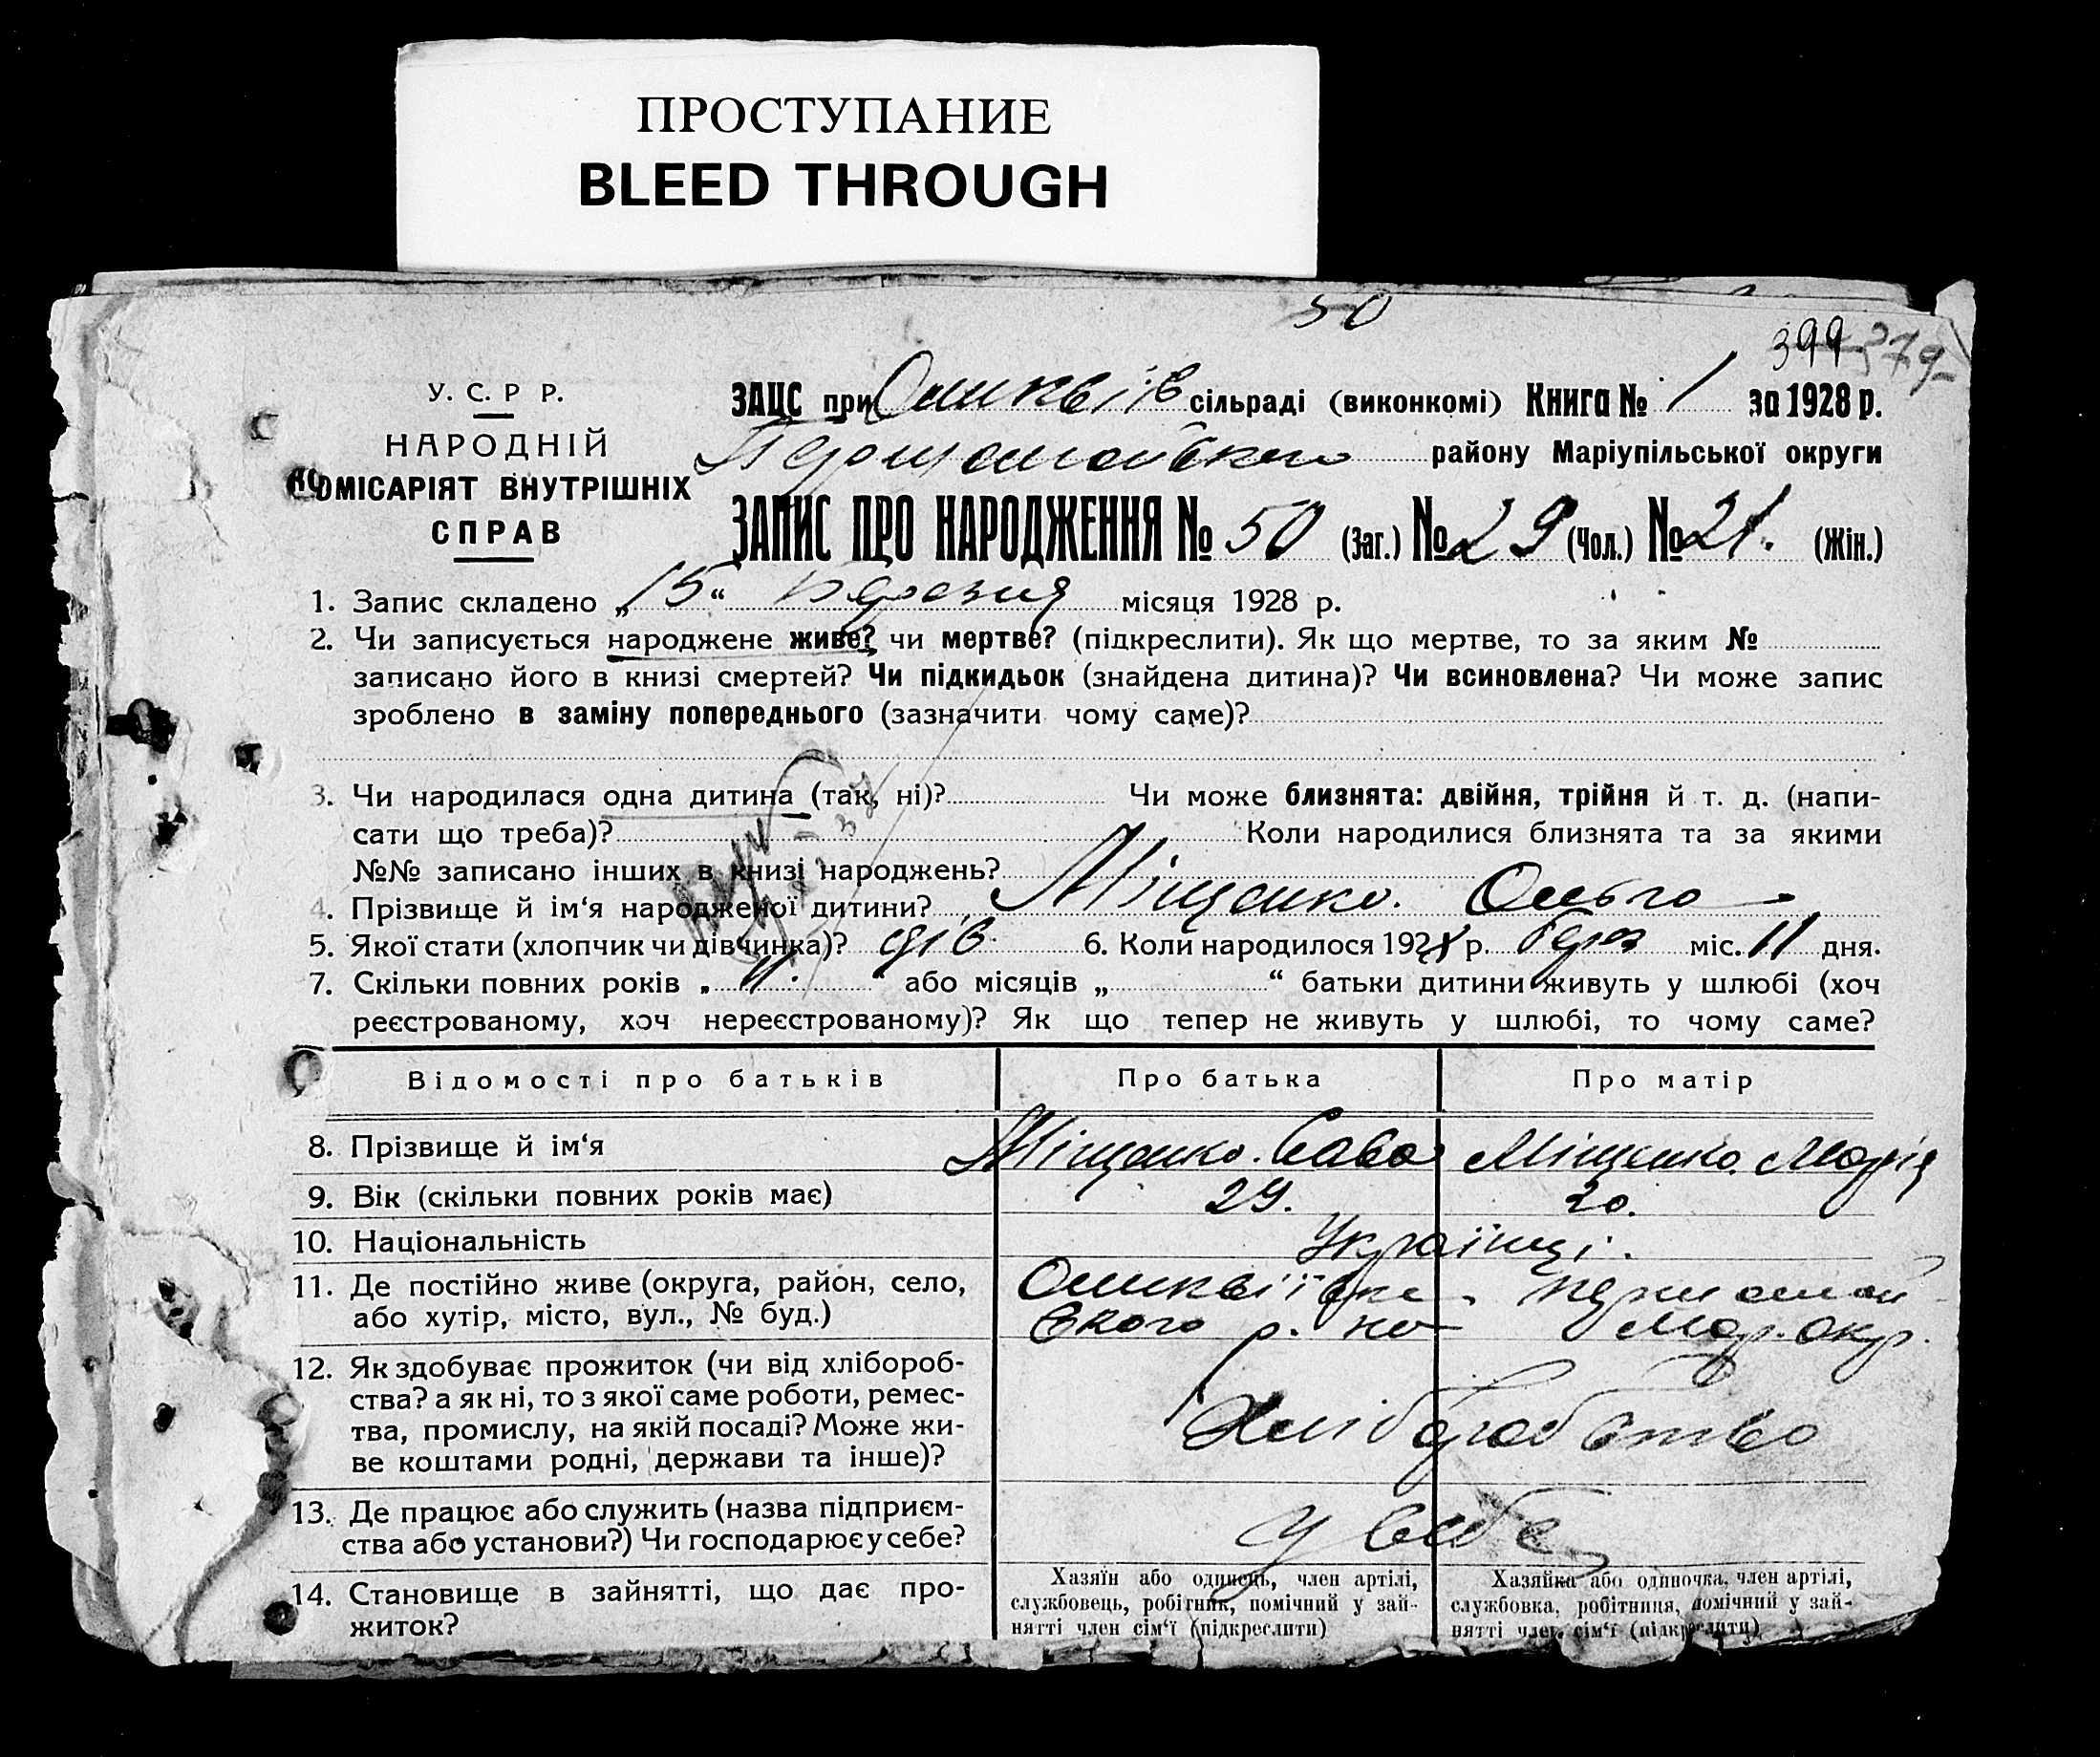 ПРОСТУПАНИЕ
BLEED THROUGH
50
399 379
У. С. Р Р.
НАРОДНІЙ
КОМІСАРІЯТ ВНУТРІШНІХ
СПРАВ
ЗАЦС при сільраді (виконкомі) Книга № 1 за 1928 р.
Першомайського району Маріупільської округи
ЗАПИС ПРО НАРОДЖЕННЯ № 50 (Заг.) № 29 (Чол.) № 21. (Жін.)
1. Запис складено „15“ Березня місяця 1928 р.
2. Чи записується народжене живе? чи мертве? (підкреслити). Як що мертве, то за яким №
записано його в книзі смертей? Чи підкидьок (знайдена дитина)? Чи всиновлена? Чи може запис
зроблено в заміну попереднього (зазначити чому саме)?
3. Чи народилася одна дитина (так, ні)? Чи може близнята: двійня, трійня й т. д. (напи-
сати що треба)? Коли народилися близнята та за якими
№№ записано інших в книзі народжень?
4. Прізвище й ім‘я народженої дитини? Міщенко. Ольга
5. Якої стати (хлопчик чи дівчинка)? дів. 6. Коли народилося 1928 р. берез міс. 11 дня.
7. Скільки повних років „ “ або місяців „ “ батьки дитини живуть у шлюбі (хоч
реєстрованому, хоч нереєстрованому)? Як що тепер не живуть у шлюбі, то чому саме?
Відомості про батьків Про батька Про матір
8. Прізвище й ім‘я Міщенко. Сава Міщенко. Марія
9. Вік (скільки повних років має) 29. 20.
10. Національність Українці.
11. Де постійно живе (округа, район, село, першомай
або хутір, місто, вул., № буд.) ського р. на Мар. окр.
12. Як здобуває прожиток (чи від хлібороб-
ства? а як ні, то з якої саме роботи, ремес-
тва, промислу, на якій посаді? Може жи-
ве коштами родні, держави та інше)? Хліборобство
13. Де працює або служить (назва підприєм-
ства або установи?) Чи господарює у себе? у себе
14. Становище в зайнятті, що дає про-
житок?
Хазяїн або одинець, член артілі,
службовець, робітник, помічний у зай-
нятті член сім‘ї (підкреслити)
Хазяйка або одиночка, член артілі,
службовка, робітниця, помічний у зай-
нятті член сім‘ї (підкреслити)